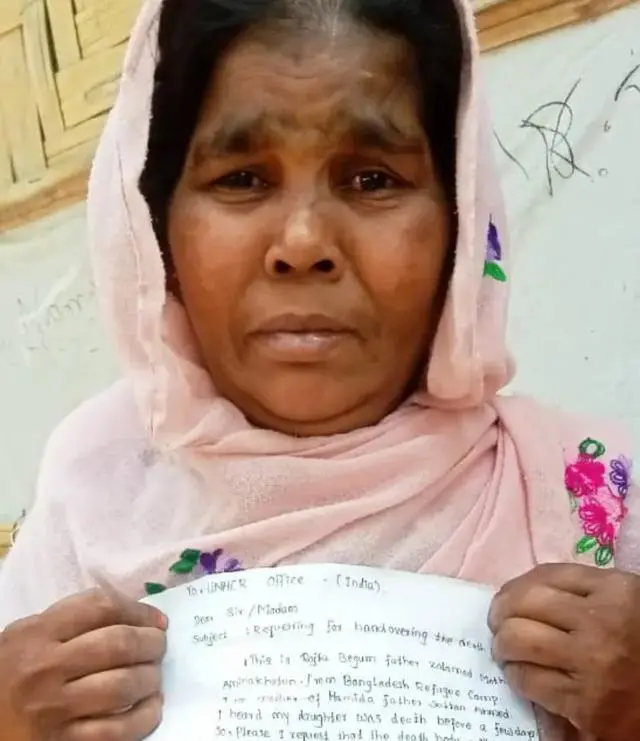 To, UNHCR Office - (India)
Dear Sir/Madam
Subject : Requesting for handovering the death
This is Begum father
from Bangladesh Refugee Camp
mother of Hamida father
I heard my daughter was death before a few days
So, Please I request that the death body